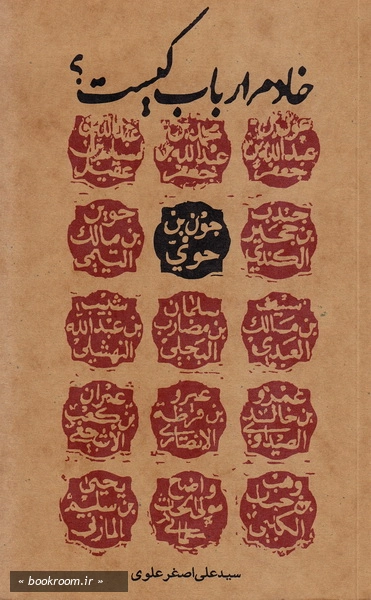 خادم ارباب کیست؟
عون بن
عبدالله بن
جعفر
محمد بن
عبدالله بن
جعفر
عبدالله بن
مسلم بن
عقیل
جندب
بن حجیر
الکندی
جون بن
حوی
جوین
بن مالک
التیمی
سیف
بن مالک
العبدی
سلمان
بن مضارب
البجلی
شبیب
بن عبدالله
النهشلی
عمرو
بن خالد
الصیداوی
عمرو
بن قرظه
الانصاری
عمران
بن کعب
الاشجعی
وهب
الکلبی
واضح
مولی حرث
یحیی
بن سلیم
المازنی
سید علی اصغر علوی
« bookroom.ir »